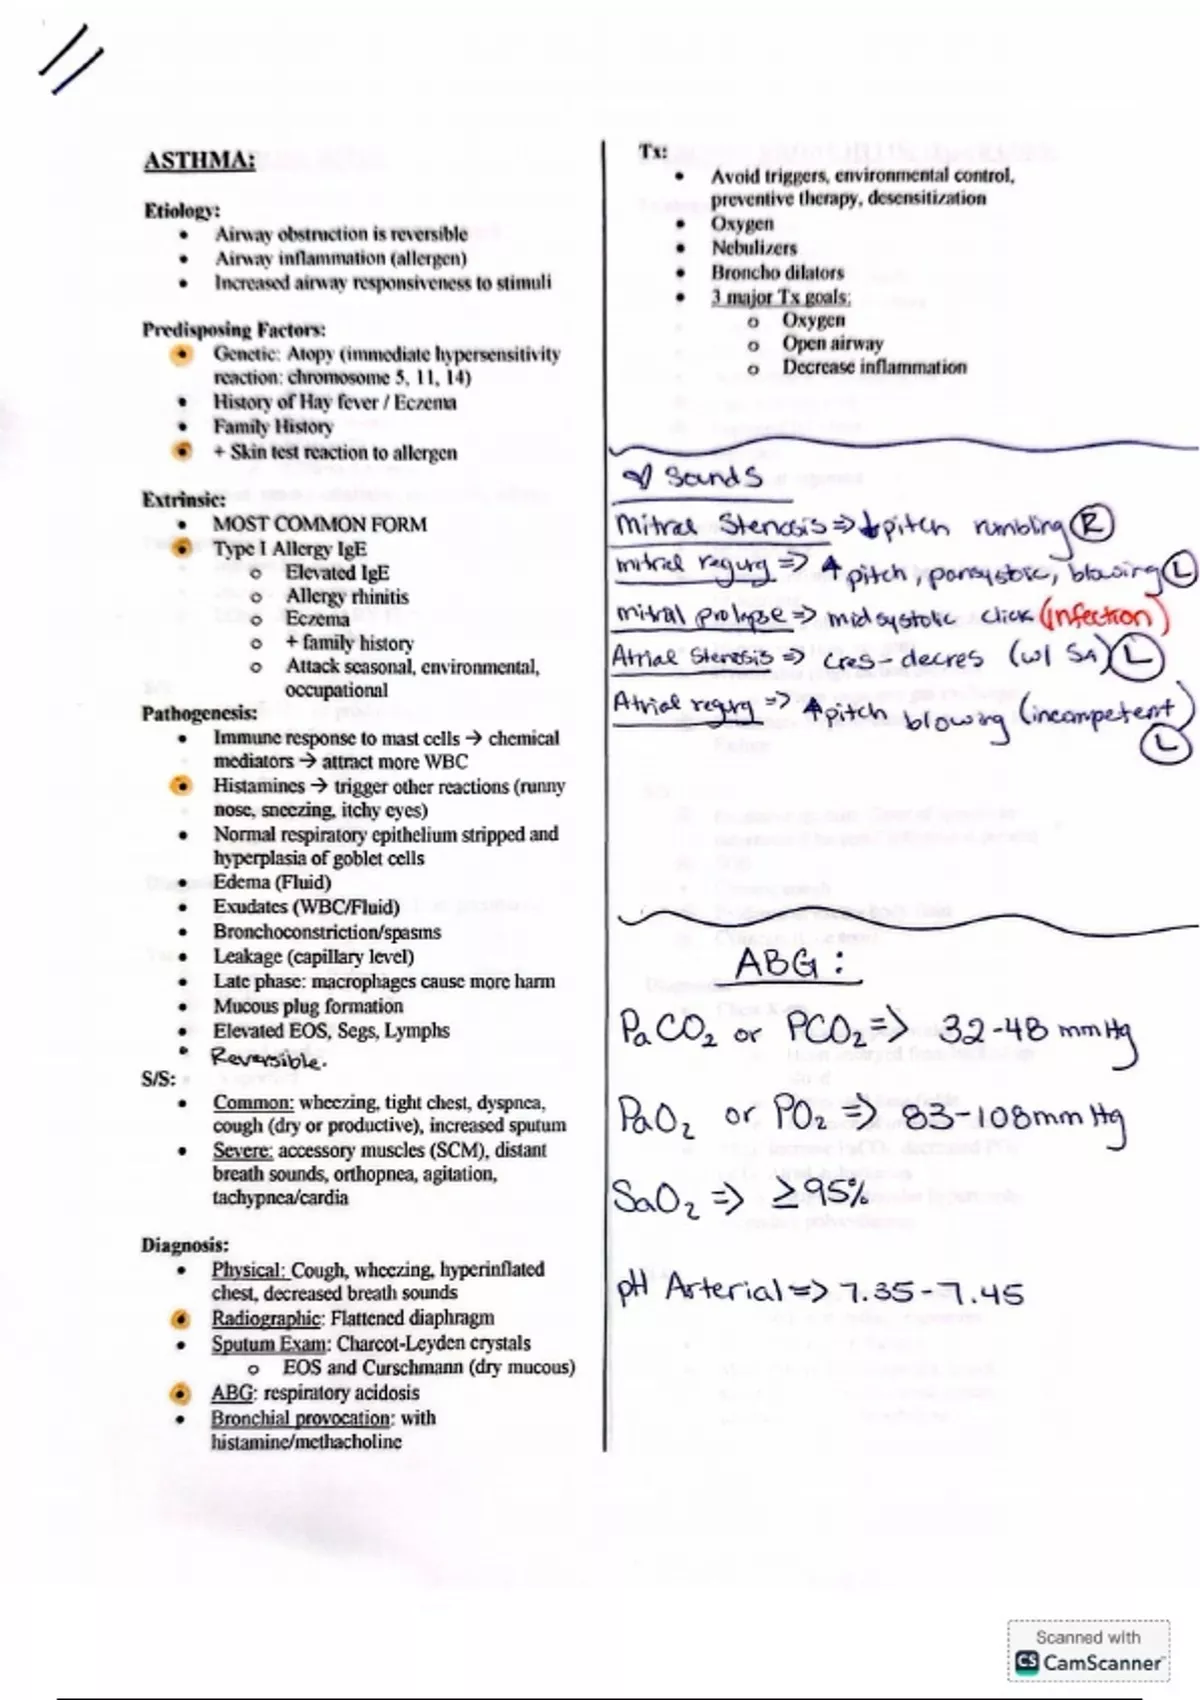 ASTHMA:
Etiology:
• Airway obstruction is reversible
• Airway inflammation (allergen)
• Increased airway responsiveness to stimuli
Predisposing Factors:
• Genetic: Atopy (immediate hypersensitivity
reaction: chromosome 5, 11, 14)
• History of Hay fever / Eczema
• Family History
• + Skin test reaction to allergen
Extrinsic:
• MOST COMMON FORM
• Type I Allergy IgE
o Elevated IgE
o Allergy rhinitis
o Eczema
o + family history
o Attack seasonal, environmental,
occupational
Pathogenesis:
• Immune response to mast cells → chemical
mediators → attract more WBC
• Histamines → trigger other reactions (runny
nose, sneezing, itchy eyes)
• Normal respiratory epithelium stripped and
hyperplasia of goblet cells
• Edema (Fluid)
• Exudates (WBC/Fluid)
• Bronchoconstriction/spasms
• Leakage (capillary level)
• Late phase: macrophages cause more harm
• Mucous plug formation
• Elevated EOS, Segs, Lymphs
• Reversible.
S/S:
• Common: wheezing, tight chest, dyspnea,
cough (dry or productive), increased sputum
• Severe: accessory muscles (SCM), distant
breath sounds, orthopnea, agitation,
tachypnea/cardia
Diagnosis:
• Physical: Cough, wheezing, hyperinflated
chest, decreased breath sounds
• Radiographic: Flattened diaphragm
• Sputum Exam: Charcot-Leyden crystals
o EOS and Curschmann (dry mucous)
• ABG: respiratory acidosis
• Bronchial provocation: with
histamine/methacholine
Tx:
• Avoid triggers, environmental control,
preventive therapy, desensitization
• Oxygen
• Nebulizers
• Broncho dilators
• 3 major Tx goals:
o Oxygen
o Open airway
o Decrease inflammation
♡ Sounds
Mitral Stenosis => ↓pitch rumbling (R)
mitral regurg => ↑pitch, pansystolic, blowing (L)
mitral prolapse => midsystolic click (infection)
Atrial Stenosis => cres-decres (w/ S4) (L)
Atrial regurg => ↑pitch blowing (incompetent)
(L)
ABG:
PaCO₂ or PCO₂ => 32-48 mmHg
PaO₂ or PO₂ => 83-108mmHg
SaO₂ => ≥95%
pH Arterial => 7.35-7.45
Scanned with
CS CamScanner